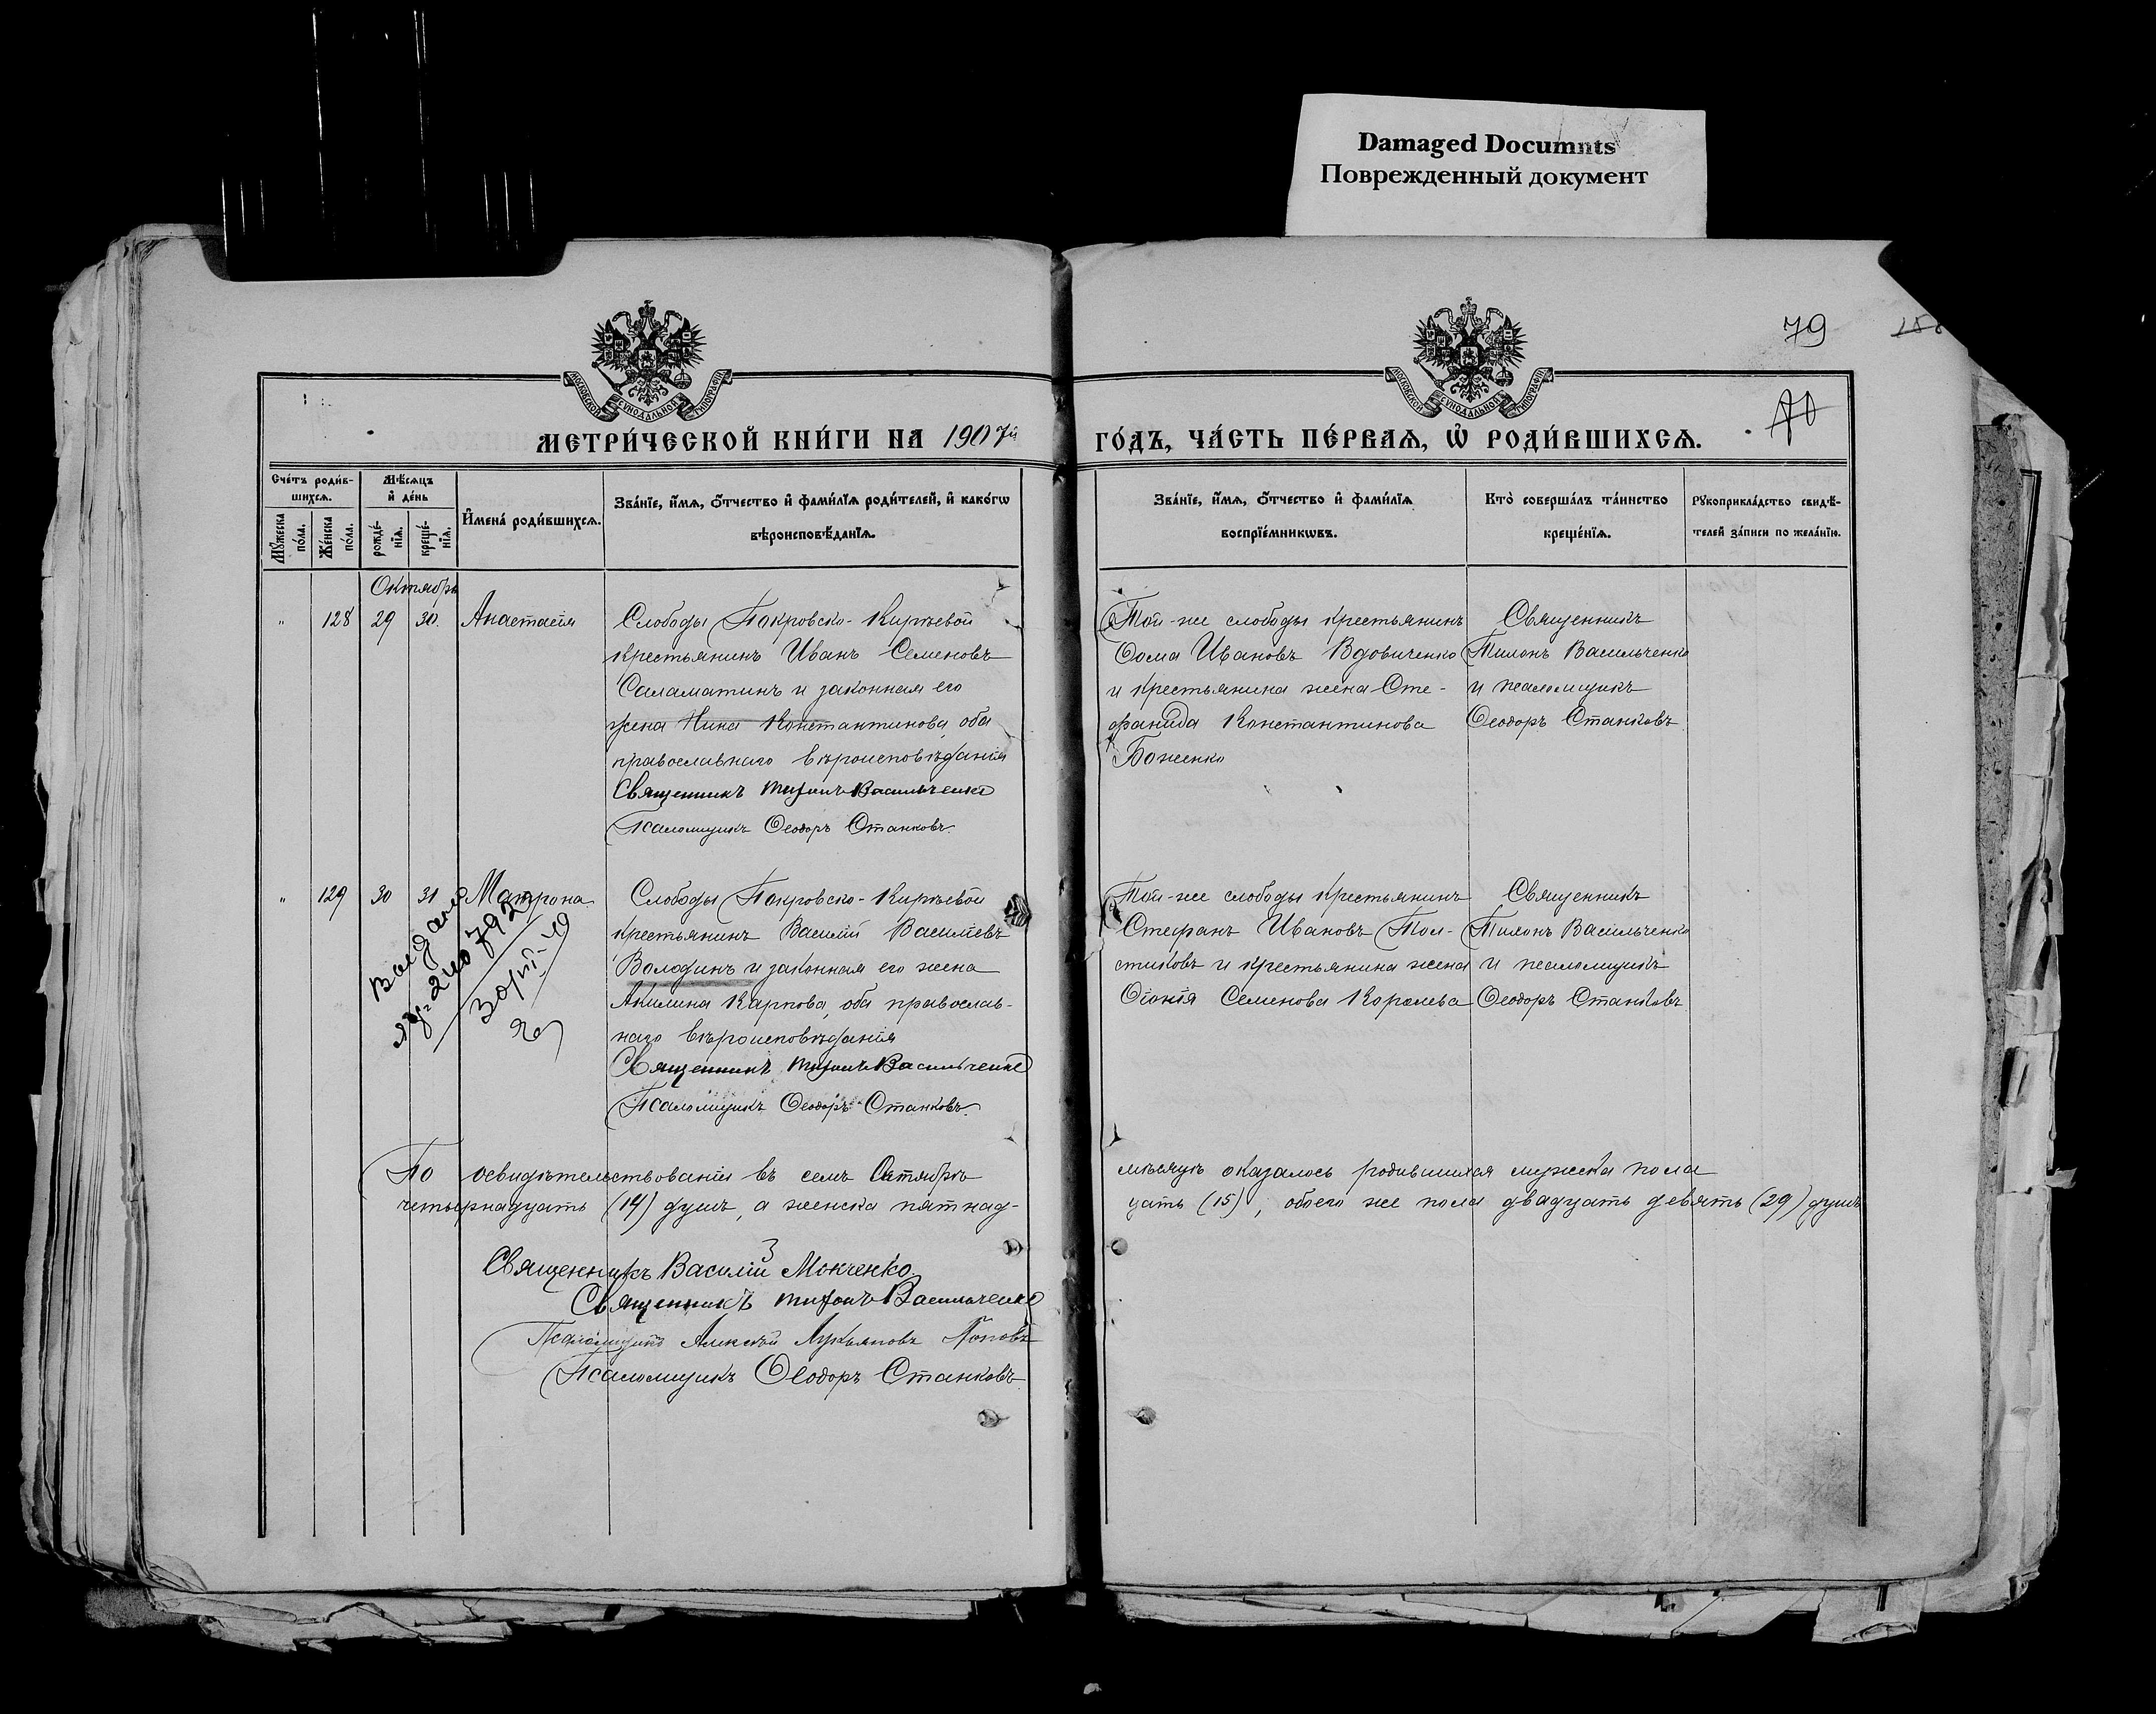 Damaged Documnts
Поврежденный документ
79
МОСКОВСКОЙ СѴНОДАЛЬНОЙ ТИПОГРАФІИ
МОСКОВСКОЙ СѴНОДАЛЬНОЙ ТИПОГРАФІИ
МЕТРИ́ЧЕСКОЙ КНИ́ГИ НА 1907й
ГО́ДЪ, ЧА́СТЬ ПЕ́РВАѦ, Ѡ҆ РОДИ́ВШИХСѦ.
Сче́тъ роди́в-
шихсѧ.
Мꙋ́жеска
по́ла.
Же́нска
по́ла.
Мѣ́сѧцъ
и҆ де́нь
рожде́-
нїѧ.
креще́-
нїѧ.
И҆мена́ роди́вшихсѧ.
Зва́нїе, и҆́мѧ, ѻ҆́тчество и҆ фами́лїѧ роди́телей, и҆ како́гѡ
вѣроисповѣ́данїѧ.
Зва́нїе, и҆́мѧ, ѻ҆́тчество и҆ фами́лїѧ
воспрїе́мникѡвъ.
Кто̀ соверша́лъ та́инство
креще́нїѧ.
Рꙋкоприкла́дство свидѣ́-
телей за́писи по жела́нїю.
Октябрь
„ 128 29 30. Анастасія
Слободы Покровско-Кирѣевой
крестьянинъ Иванъ Семеновъ
Саламатинъ и законная его
жена Нина Константинова, оба
православнаго вѣроисповѣданія
Священникъ Тихонъ Васильченко
Псаломщикъ Ѳеодоръ Станковъ.
Той-же слободы крестьянинъ
Ѳома Ивановъ Вдовиченко
и крестьянина жена Сте-
фанида Константинова
Боженко
Священникъ
Тихонъ Васильченко
и псаломщикъ
Ѳеодоръ Станковъ
„ 129 30 31 Матрона
Слободы Покровско-Кирѣевой
крестьянинъ Василій Васильевъ
Володинъ и законная его жена
Акилина Карпова, оба православ-
наго вѣроисповѣданія
Священникъ Тихонъ Васильченко
Псаломщикъ Ѳеодоръ Станковъ.
Той-же слободы крестьянинъ
Стефанъ Ивановъ Тол-
стиковъ и крестьянина жена
Семенова Королева
Священникъ
Тихонъ Васильченко
и псаломщикъ
Ѳеодоръ Станковъ
По освидѣтельствованіи въ семъ Октябрѣ мѣсяцѣ оказалось родившихся мужска пола
четырнадцать (14) душъ, а женска пятнад-цать (15), обоего же пола двадцать девять (29) душъ
Священникъ Василій Мокченко.
Священникъ Тихонъ Васильченко
Псаломщикъ Алексѣй Лукьяновъ Поповъ
Псаломщикъ Ѳеодоръ Станковъ